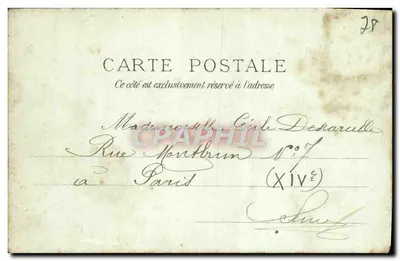 78
CARTE POSTALE
Ce côté est exclusivement réservé à l'adresse
Mademoiselle
CPAPHIL
Rue Montbrun No. 7
à Paris (XIVe)
Seine